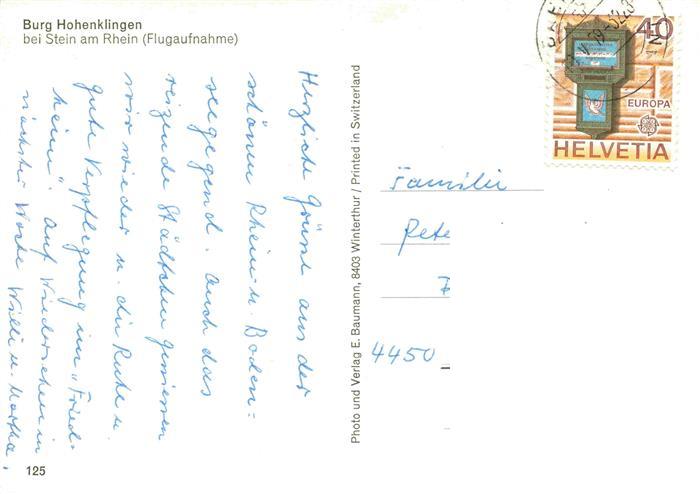 Burg Hohenklingen
bei Stein am Rhein (Flugaufnahme)
Herzliche Grüsse aus der
schönen Rhein- u. Boden-
seegegend. Auch das
reizende Städtchen geniessen
wir wieder u. die Ruhe u.
gute Verpflegung im "Fried-
heim". Auf Wiedersehen in
nächster Woche Willi u. Martha.
125
Photo und Verlag E. Baumann, 8403 Winterthur / Printed in Switzerland
40
EUROPA
HELVETIA
Familie
Pete
4450